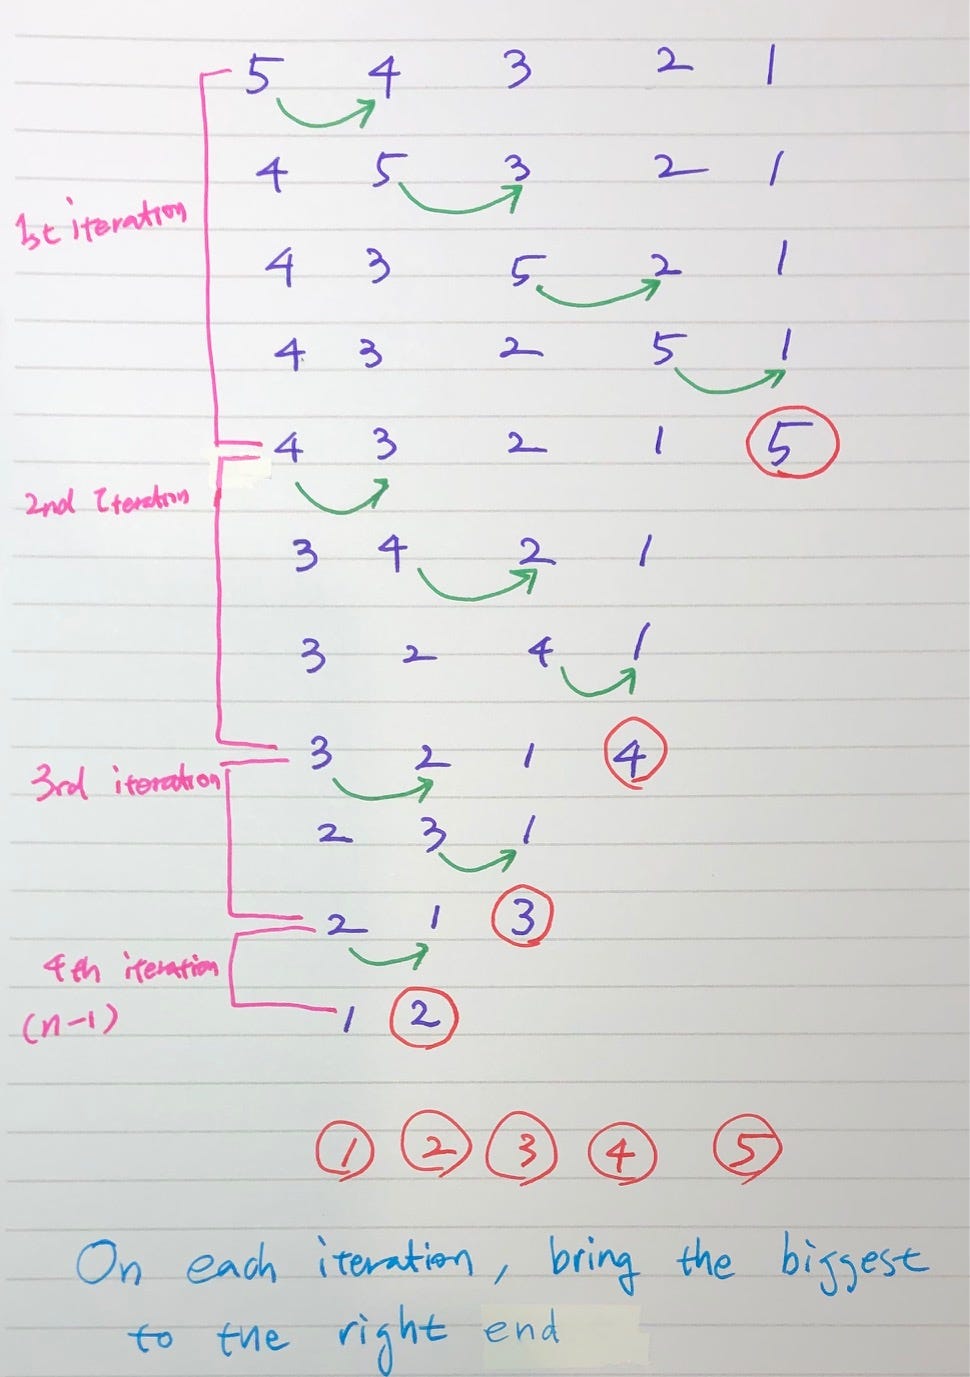 5 4 3 2 1
4 5 3 2 1
1st iteration
4 3 5 2 1
4 3 2 5 1
4 3 2 1 5
2nd iteration
3 4 2 1
3 2 4 1
3 2 1 4
3rd iteration
2 3 1
2 1 3
4th iteration
(n-1)
1 2
1 2 3 4 5
On each iteration, bring the biggest
to the right end